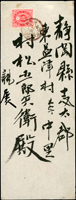 静岡縣志太郡
東益津村字中里
村松五郎兵衛殿
親展